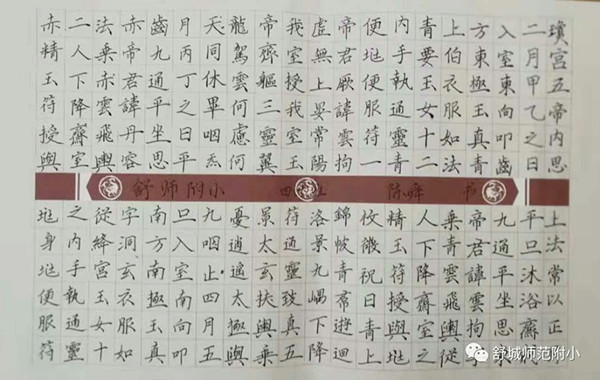 瓊宮五帝內思上法常以正
二月甲乙之日平旦沐浴齋
入室東向叩齒九通平坐思東
方東極玉真青帝君諱雲拘字
上伯衣服如法乘青雲飛輿從
青要玉女十二人下降齋室之
內手執通靈青精玉符授與地
便地便服符一枚微祝曰青上
帝君厥諱雲拘錦帔青帬遊迴
虛無上晏常陽洛景九嵎下降
我室授我室玉符通靈致真五
帝齊軀三靈翼景太玄扶輿乘
龍駕雲何慮何憂逍遙太極與
天同休畢咽炁九咽止四月五
月丙丁之日平旦入室南向叩
齒九通平坐思南方南極玉真
赤帝君諱丹容字洞玄衣服如
法乘赤雲飛輿從絳宮玉女十
二人下降齋室之內手執通靈
赤精玉符授與地身地便服符
舒师附小
陈
舒城师范附小